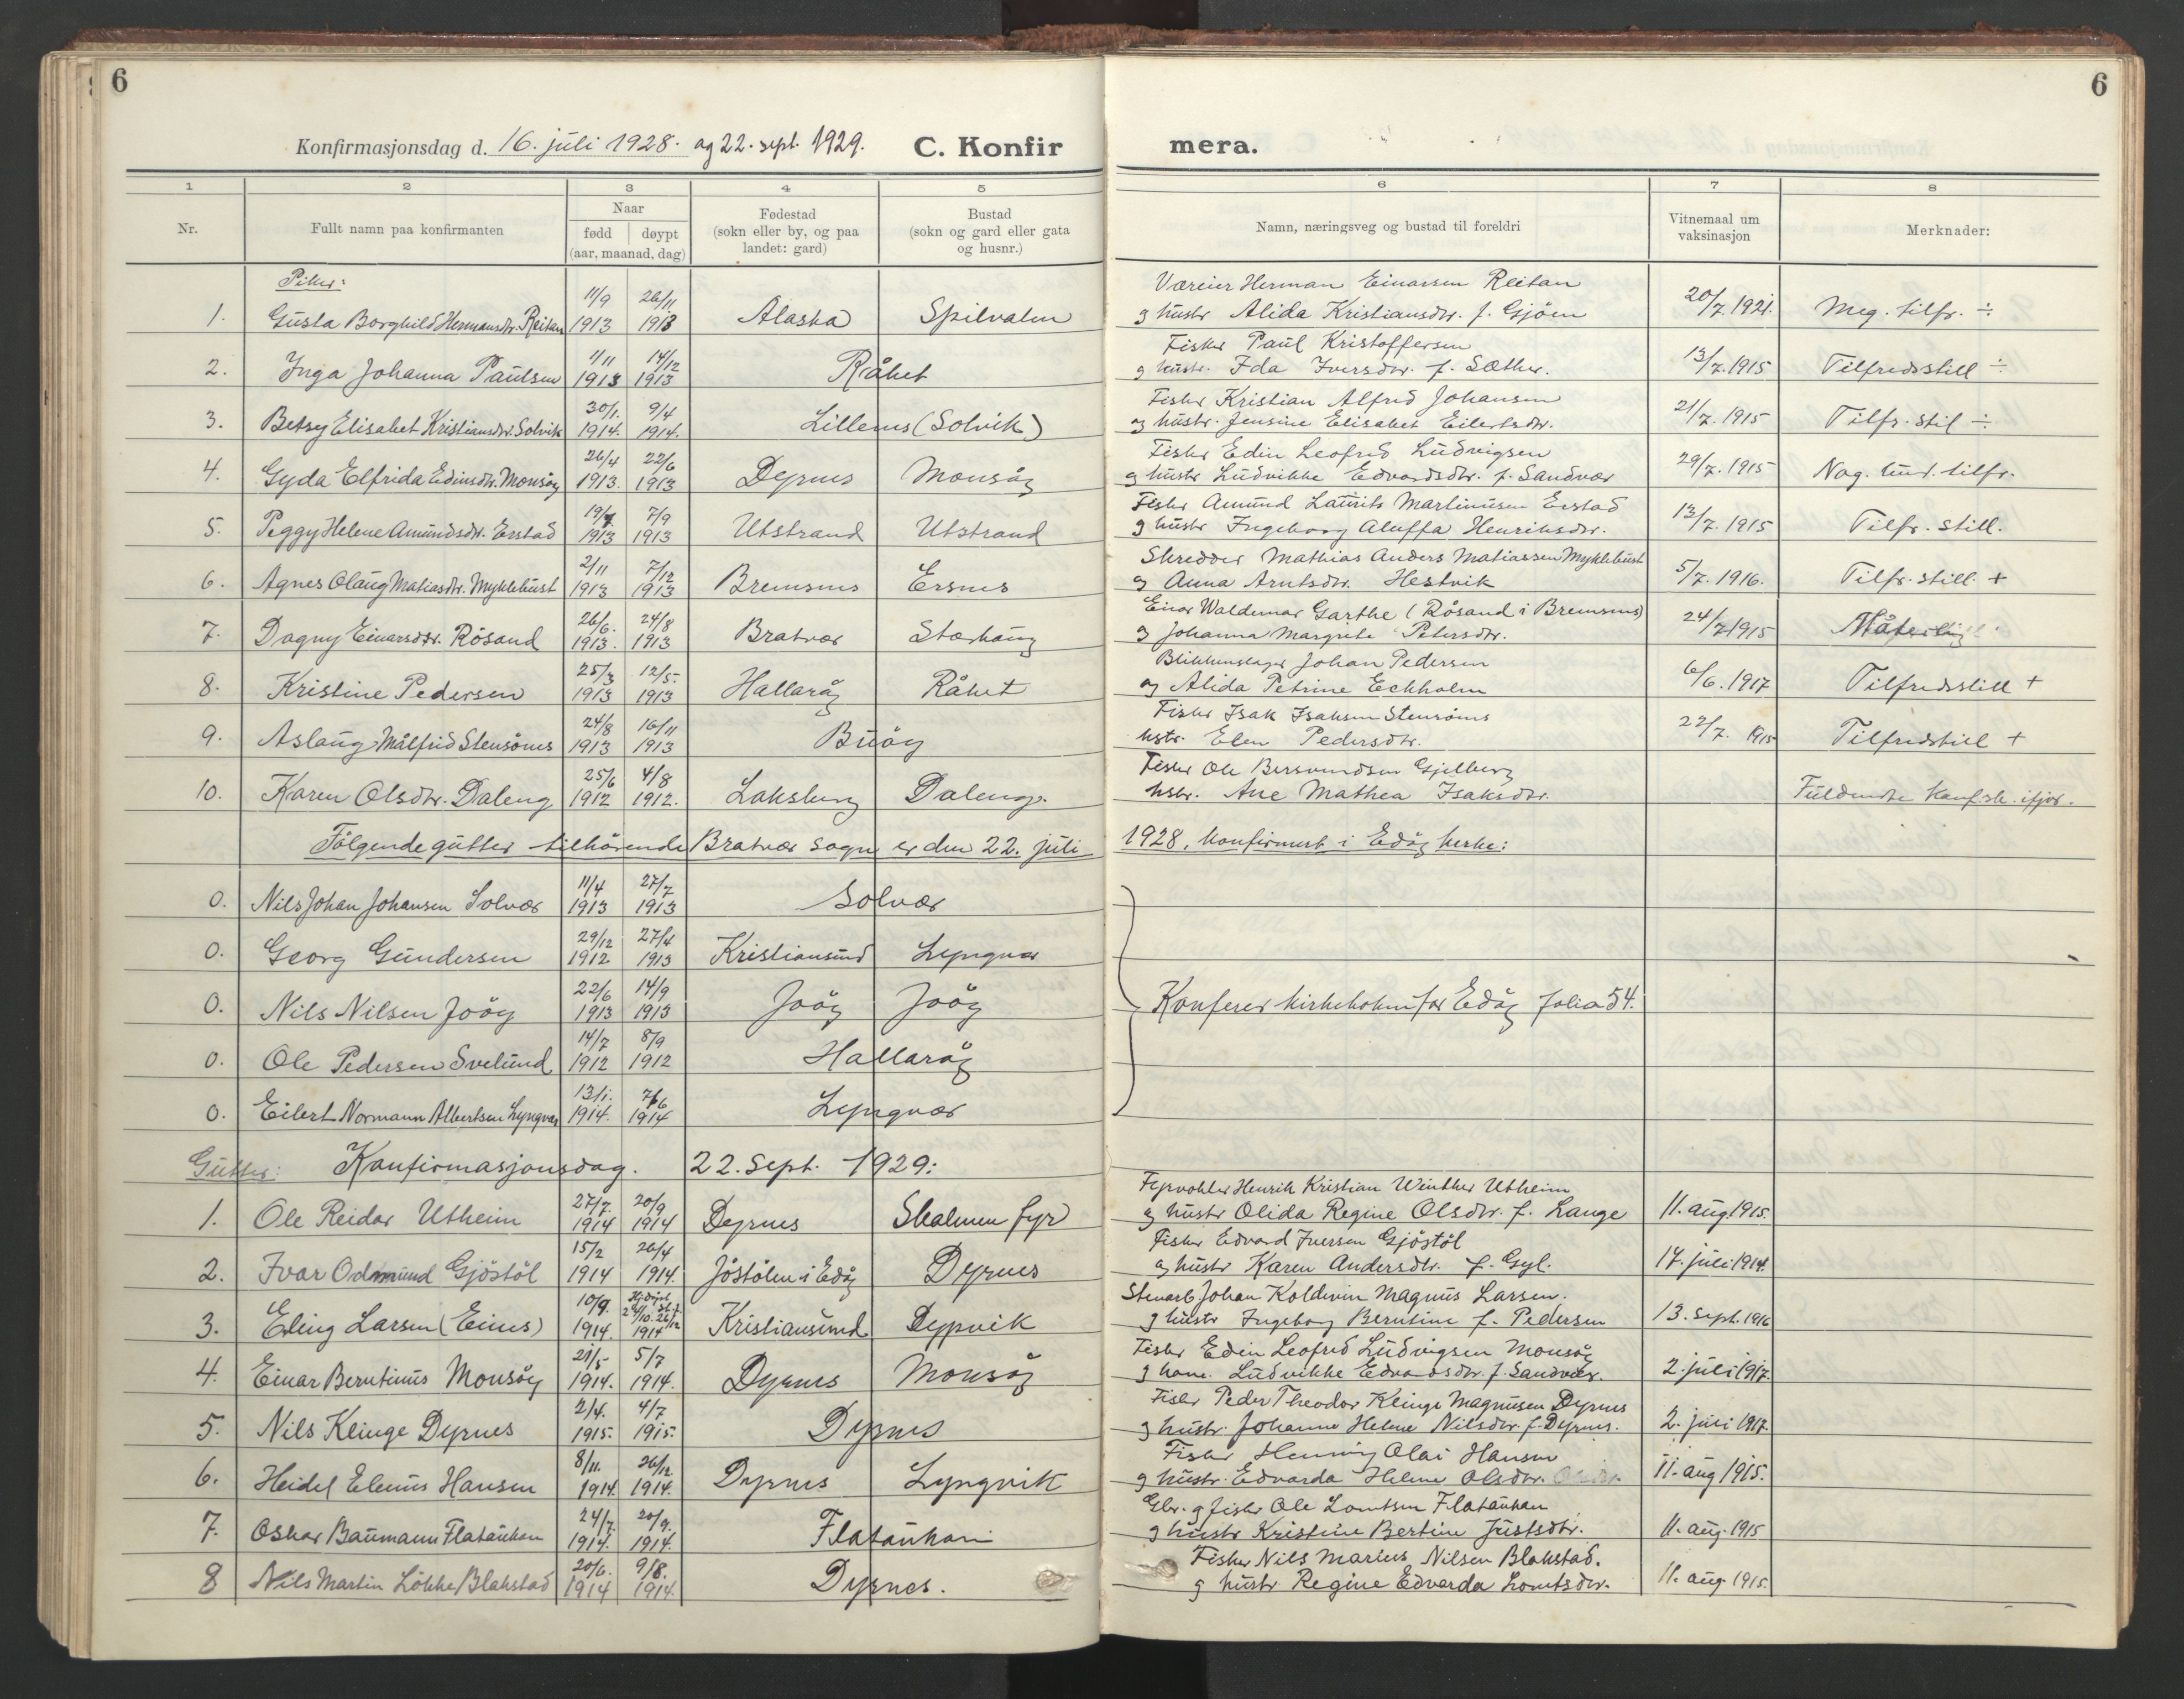 6
6
Konfirmasjonsdag d. 16. juli 1928. og 22. sept. 1929. C. Konfir mera.
1 2 3 4 5 6 7 8
Nr.
Fullt namn paa konfirmanten
Naar
fødd døypt
(aar, maanad, dag)
Fødestad
(sokn eller by, og paa
landet: gard)
Bustad
(sokn og gard eller gata
og husnr.)
Namn, næringsveg og bustad til foreldri
Vitnemaal um
vaksinasjon
Merknader:
Piker:
Herman Einarsen Reitan
11/9 26/11
1. Gusta Borghild Hermansdtr. Reitan 1913 1913 Alaska Spilvalen g hustr Alida Kristiansdtr. f. Gjöen 20/7 1921. Meg. tilfr. ÷
Fisker Paul Kristoffersen
1/11 14/12
2. Inga Johanna Paulsen 1913 1913 Råket g hustr. Ida Iversdtr. f. Sæther. 13/7. 1915 Tilfredsstill ÷
Fisker Kristian Alfred Johansen
30/1. 9/4
3. Betsy Elisabet Kristiansdtr. Solvik 1914. 1914. Lillenes (Solvik) og hustr. Jensine Elisabet Eilertsdtr. 21/7. 1915 Tilfr. stil ÷
Fisker Edin Leofred Ludvigsen
26/4 22/6
4. Gyda Elfrida Edinsdtr. Monsöy 1913. 1913 Dyrnes Monsöy g hustr Ludvikke Edvardsdtr. f. Sandvær 29/7. 1915 Nog. und. tilfr.
Fisker Amund Laurits Martinusen Erstad
19/7 7/9
5. Peggy Helene Amundsdtr. Erstad 1913 1913 Utstrand Utstrand g hustr Ingeborg Aluffa Henriksdtr. 13/7. 1915 Tilfr. still.
Skredder Mathias Anders Matiassen Myklebust
2/11 7/12
6. Agnes Olaug Matiasdtr. Myklebust 1913 1913 Bremsnes Ersnes og Anna Arntsdtr. Hestvik 5/7. 1916. Tilfr. still. +
Einar Waldemar Garthe (Rösand i Bremsnes)
26/6. 24/8
7. Dagny Einarsdtr. Rösand 1913. 1913 Bratvær Storhaug g Johanna Margrete Petersdtr. 24/7 1915 Måtelig
Blikkenslager Johan Pedersen
25/3 12/5.
8. Kristine Pedersen 1913 1913 Hallaröy Råket og Alida Petrine Eckholm 6/6. 1917 Tilfredsstill +
Fisker Isak Isaksen Stensönes
24/8 16/11
9. Aslaug Målfrid Stensönes 1913 1913 Buöy hstr. Elen Pedersdtr. 22/7. 1915 Tilfredstill +
Fisker Ole Bersvendsen Gjelberg
25/6 4/8
10. Karen Olsdtr. Daleng 1912 1912. Laksberg Daleng. hstr. Ane Mathea Isaksdtr. Fuldendte konf.sk. ifjor.
Fölgende gutter tilhörende Bratvær sogn er den 22. juli 1928. konfirmert i Edöy kirke:
11/4 27/7
0. Nils Johan Johansen Solvær 1913 1913 Solvær
29/12 27/4
0. Georg Gundersen 1912 1913 Kristiansund Lyngvær
22/6 14/9
0. Nils Nilsen Joöy 1913 1913 Joöy Joöy Konferer kirkeboken for Edöy folio 54.
14/7 8/9
0. Ole Pedersen Svelund 1912 1912 Hallaröy
13/1. 7/6
0. Eilert Normann Albertsen Lyngvær 1914. 1914 Lyngvær
Gutter: Konfirmasjonsdag. 22. sept. 1929:
Fyrvokter Henrik Kristian Winther Utheim
27/7. 20/9
1. Ole Reidar Utheim 1914 1914 Dyrnes Skalmen fyr g hustr Olida Regine Olsdtr. f. Lange 11. aug. 1915.
Fisker Edvard Iversen Gjöstöl
15/2 26/4
2. Ivar Odmund Gjöstöl 1914 1914. Jöstölen i Edöy Dyrnes og hustr Karen Andersdtr. f. Gyl. 17. juli 1914.
Stewart Johan Koldevin Magnus Larsen.
10/9. Hj.döpt
3. Eling Larsen (Eines) 1914. 1914 Kristiansund Dypvik g hustr Ingeborg Berntine f. Pedersen 13. sept. 1916
Fisker Edin Leofred Ludvigsen Monsöy
21/5 5/7
4. Einar Berntinus Monsöy 1914. 1914. Dyrnes Monsöy g kone. Ludvikke Edvardsdtr. f. Sandvær. 2. juli 1917.
Fisker Peder Theodor Klinge Magnusen Dyrnes
2/4. 4/7
5. Nils Klinge Dyrnes 1915. 1915. Dyrnes g hustr. Johanne Helene Nilsdtr. f. Dyrnes. 2. juli 1917.
Fisker Henning Olai Hansen
8/11. 26/12.
6. Heidel Elenus Hansen 1914. 1914. Dyrnes Lyngvik g hustr. Edvarda Helene Olsdtr. 11. aug 1915.
Gbr. g fisker Ole Lorntsen Flataukan
24/7. 20/9.
7. Oskar Baumann Flataukan 1914. 1914. Flataukan g hustr Kristine Bertine Justsdtr. 11. aug. 1915
Fisker Nils Marius Nilsen Blakstad.
20/6. 9/8.
8 Nils Martin Lökke Blakstad 1914 1914. Dyrnes. g hustr Regine Edvarda Lorntsdtr. 11. aug. 1915.